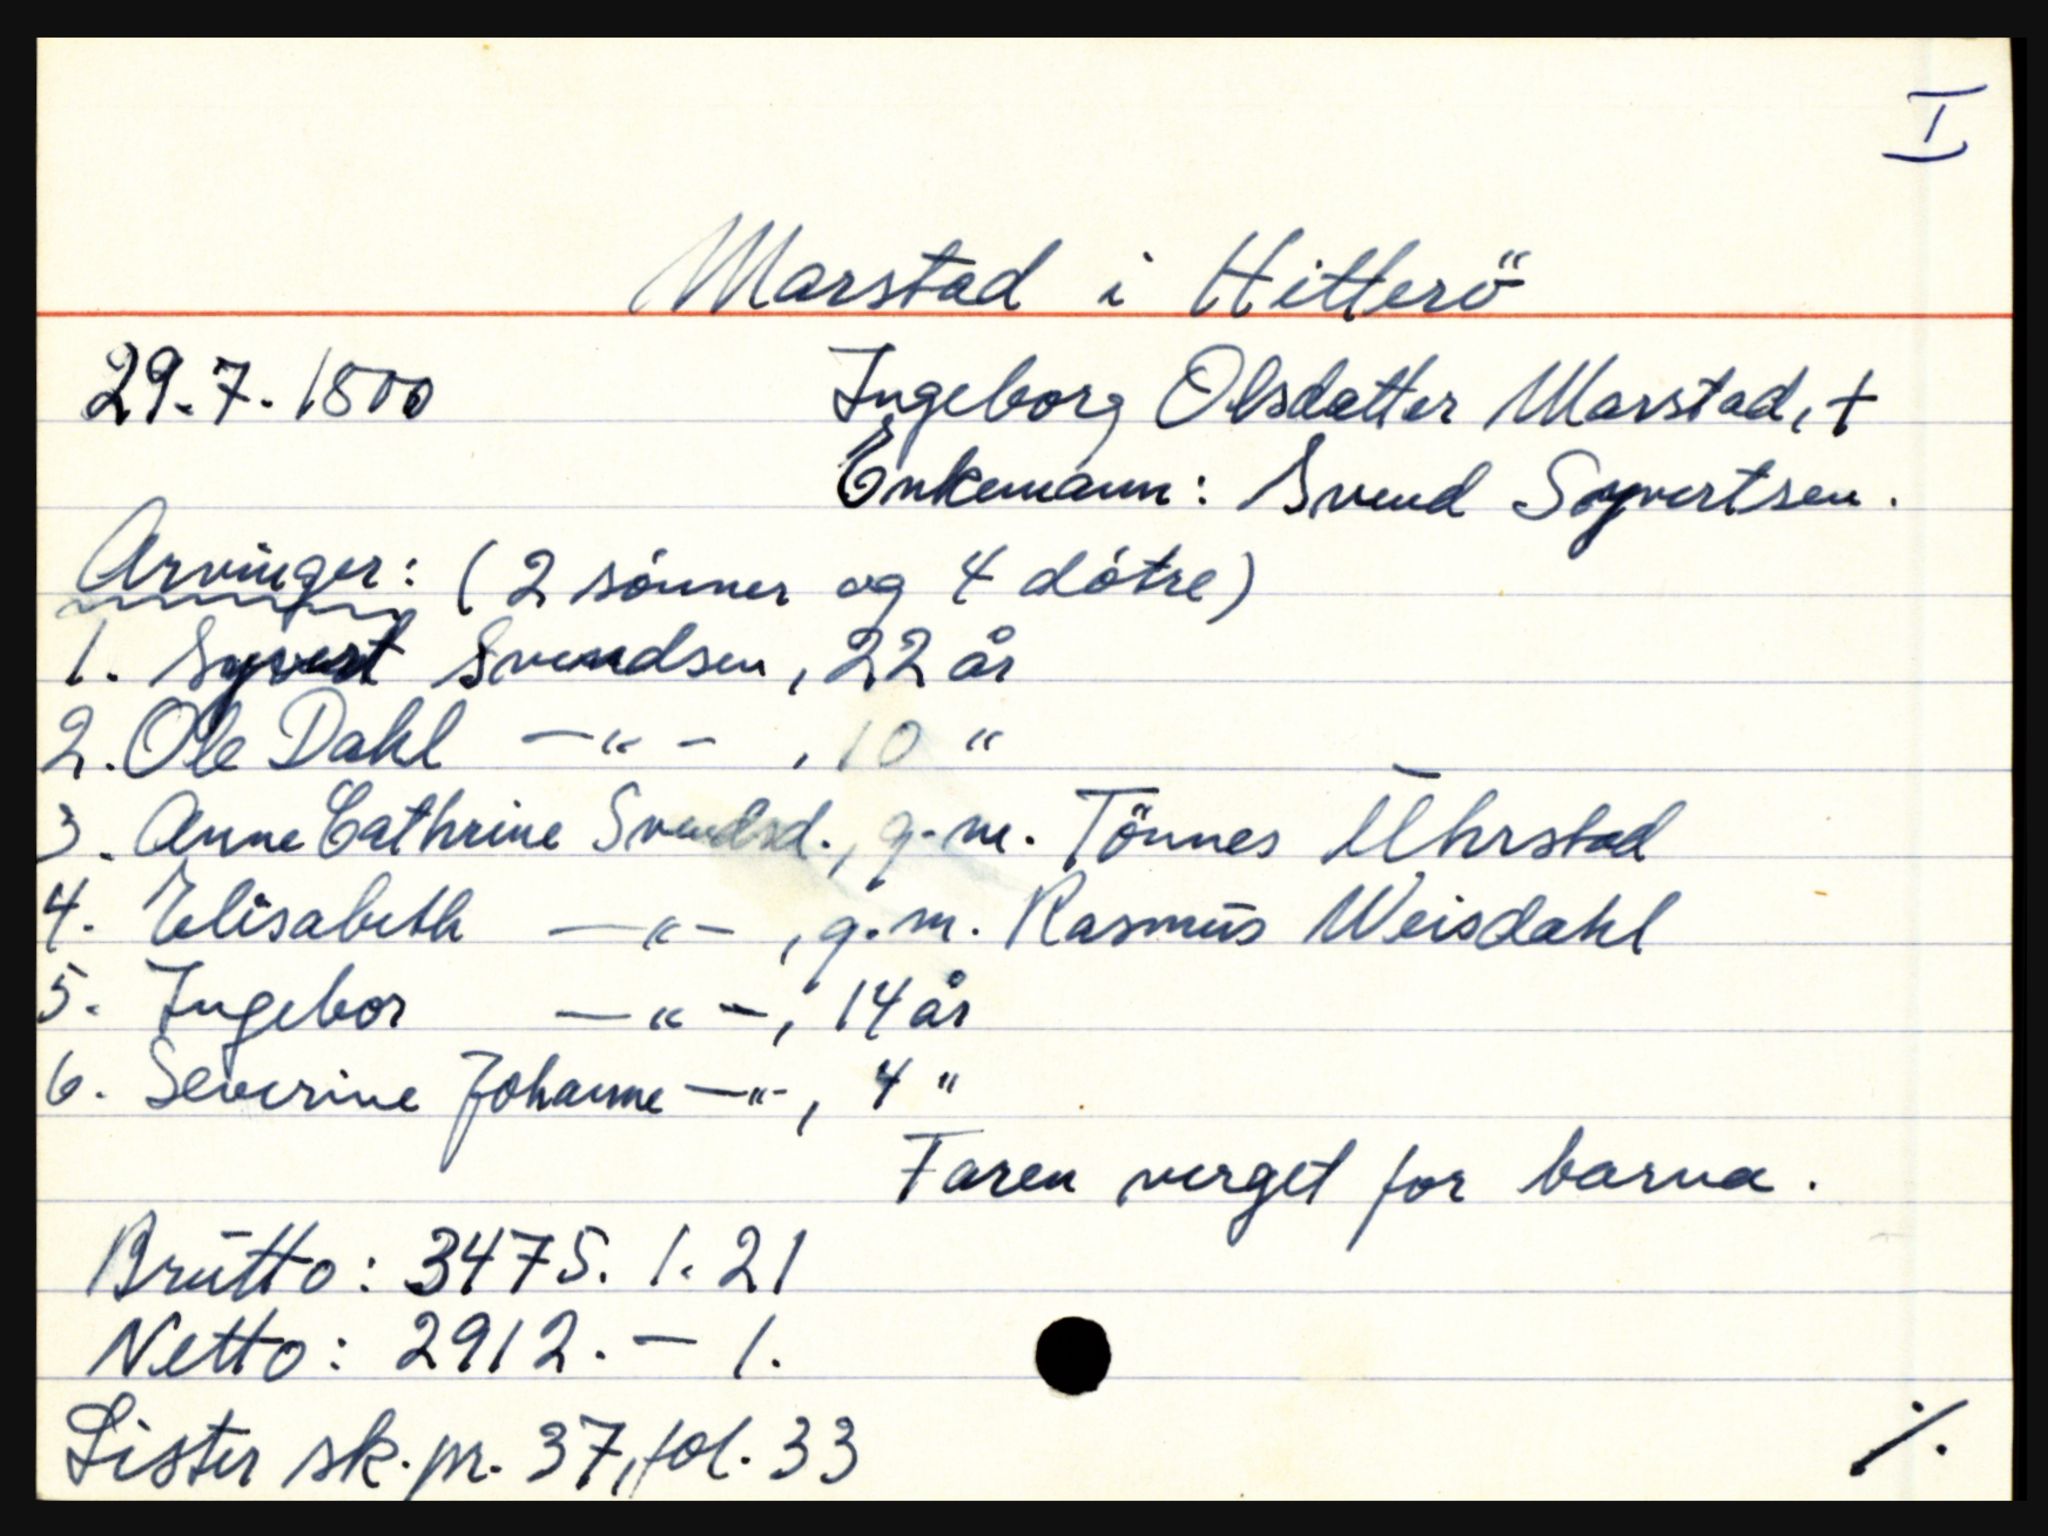 I
Marstad i Hitterö
29.7.1800 Ingeborg Olsdatter Marstad, +
Enkemann: Svend Syvertsen.
Arvinger: (2 sónner og 4 dótre)
1. Syvert Svendsen, 22 år
2. Ole Dahl —"— , 10 "
3. Anne Cathrine Svendsd., g.m. Tönnes Uhrstad
4. Elisabeth —"— , g.m. Rasmus Weisdahl
5. Ingebor —"— , 14 år
6. Severine Johanne —"— , 4 "
Faren verget for barna.
Brutto: 3475. 1. 21
Netto: 2912. — 1.
Lister sk.pr. 37, fol. 33 ./.